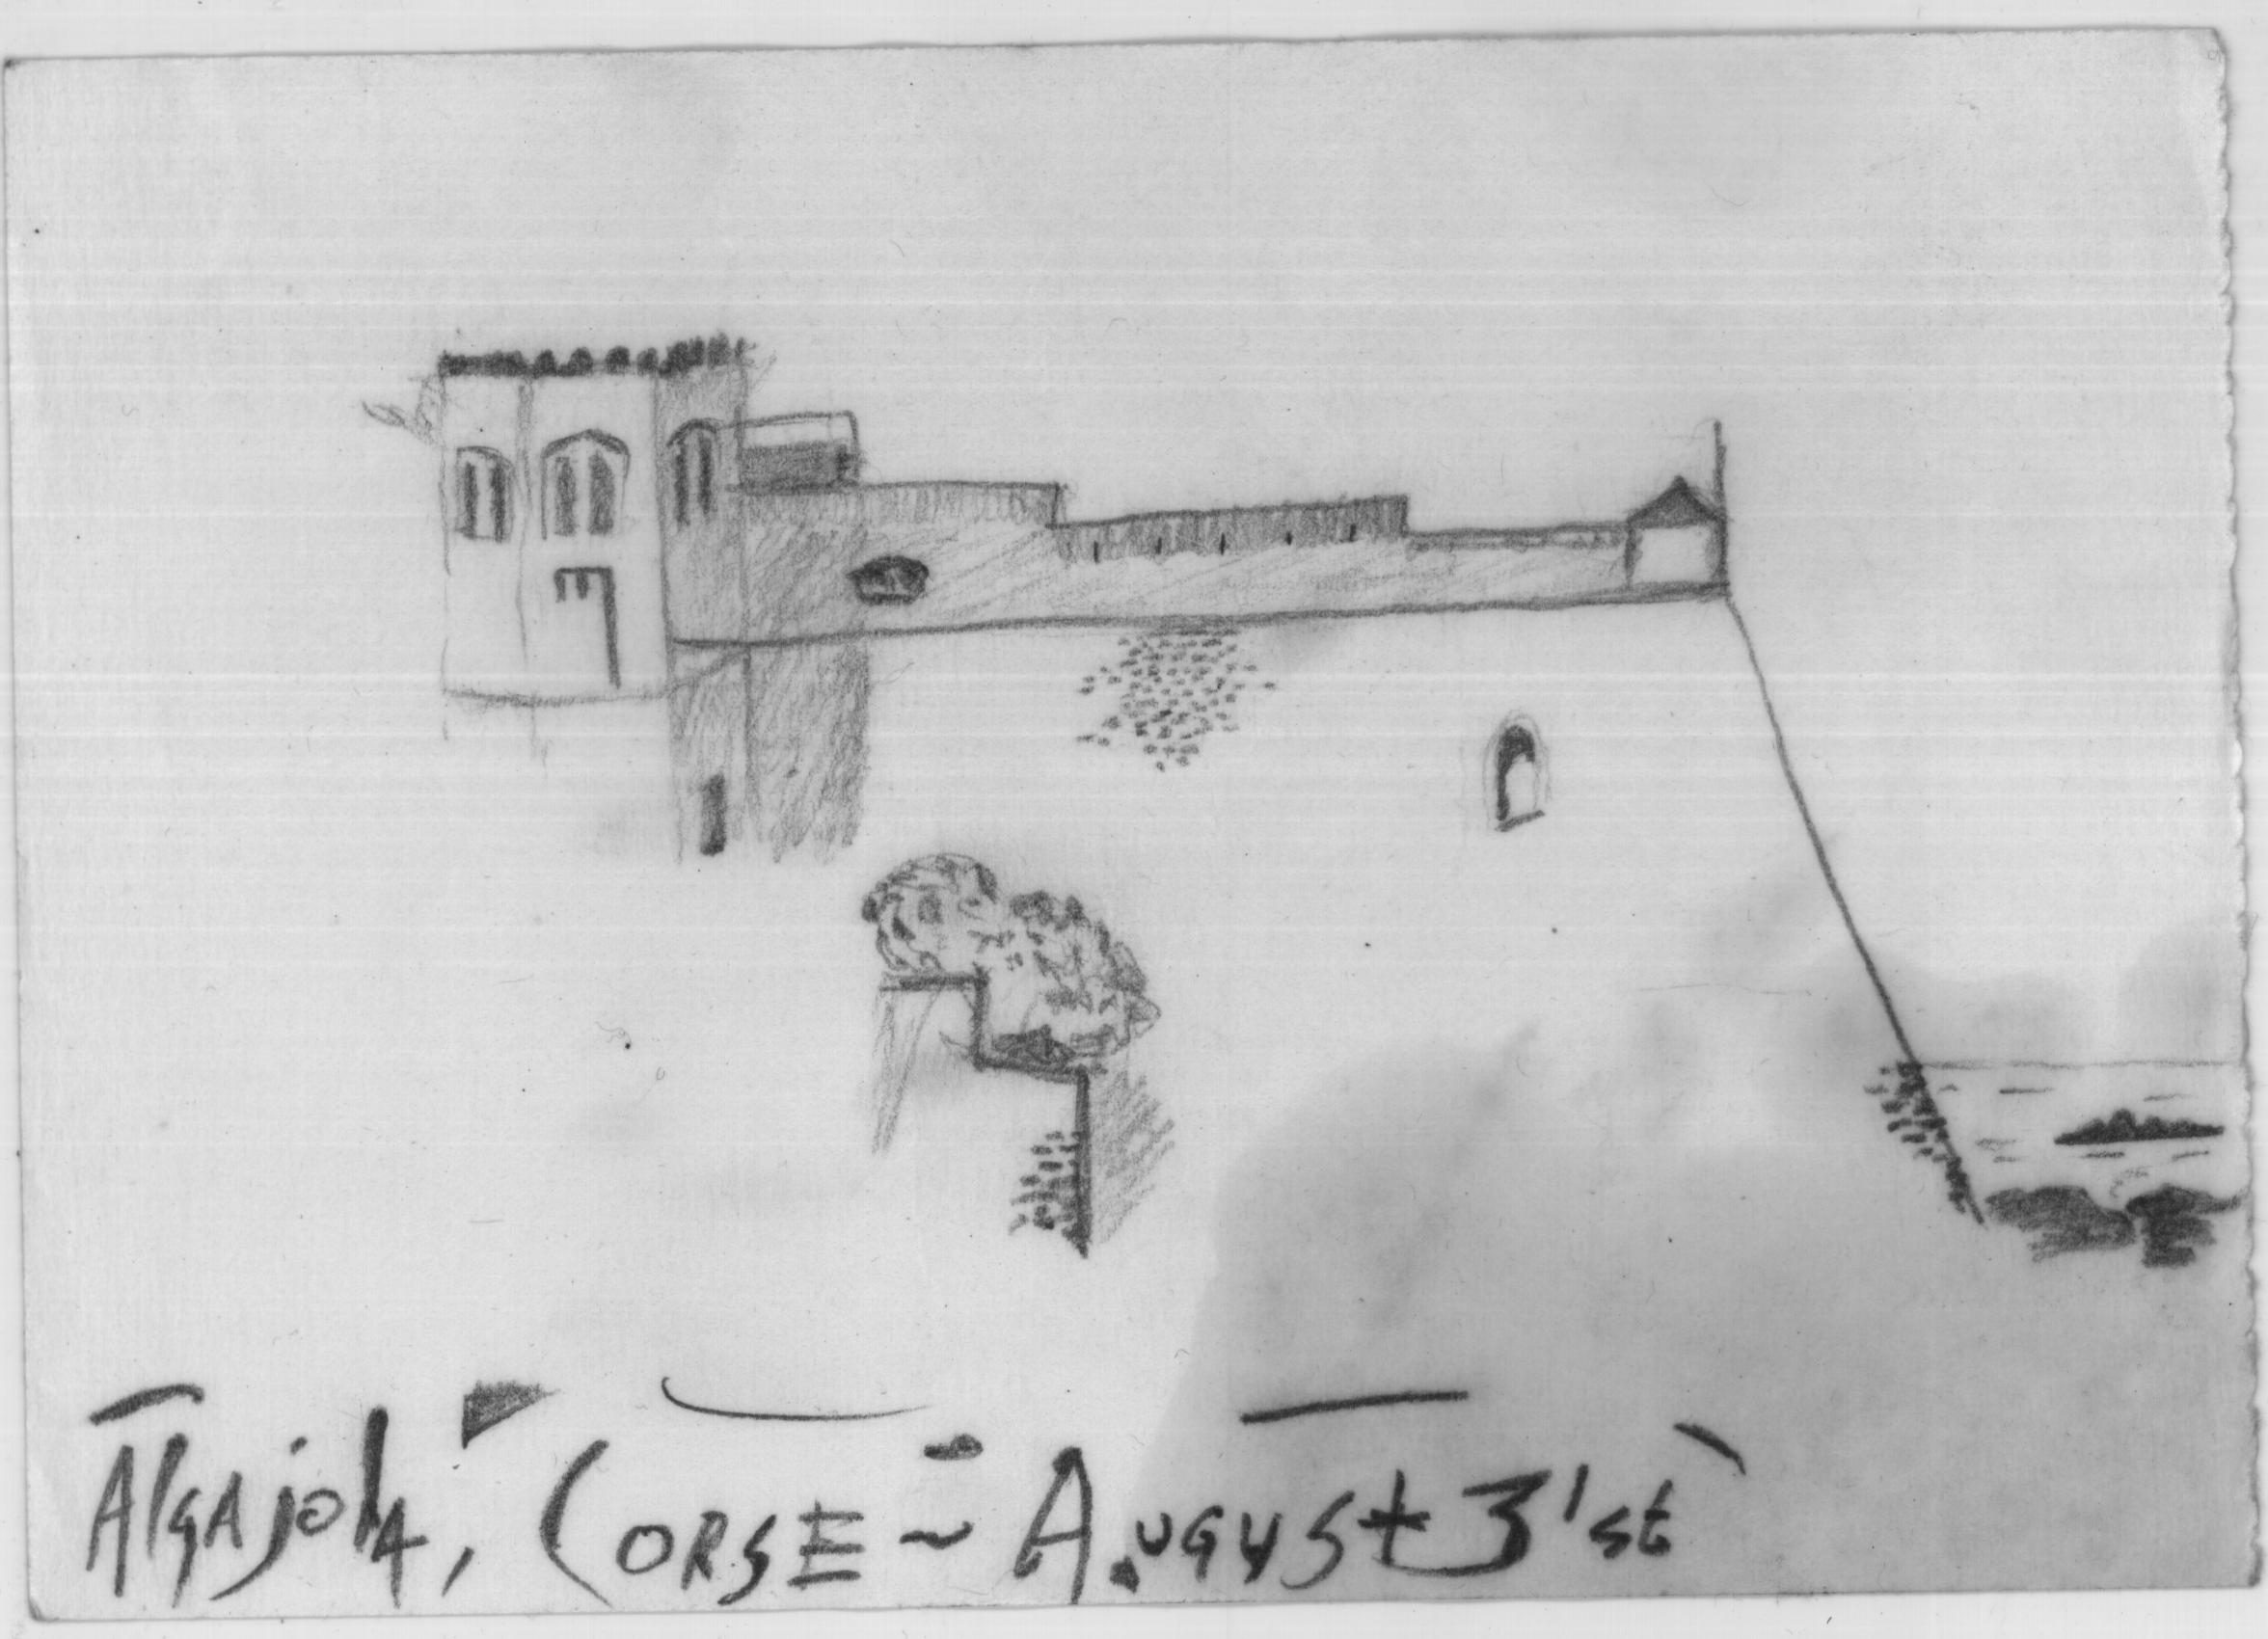 Algajola, Corse ~ August 31st